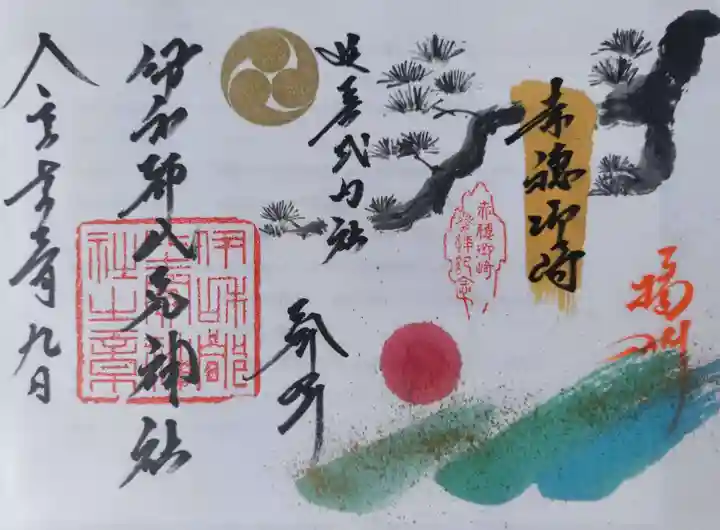 播州
赤穂御崎
赤穂御崎
参拝記念
延喜式内社
奉拝
伊和都比売神社
伊和都
比売神
社之章
令和 九日